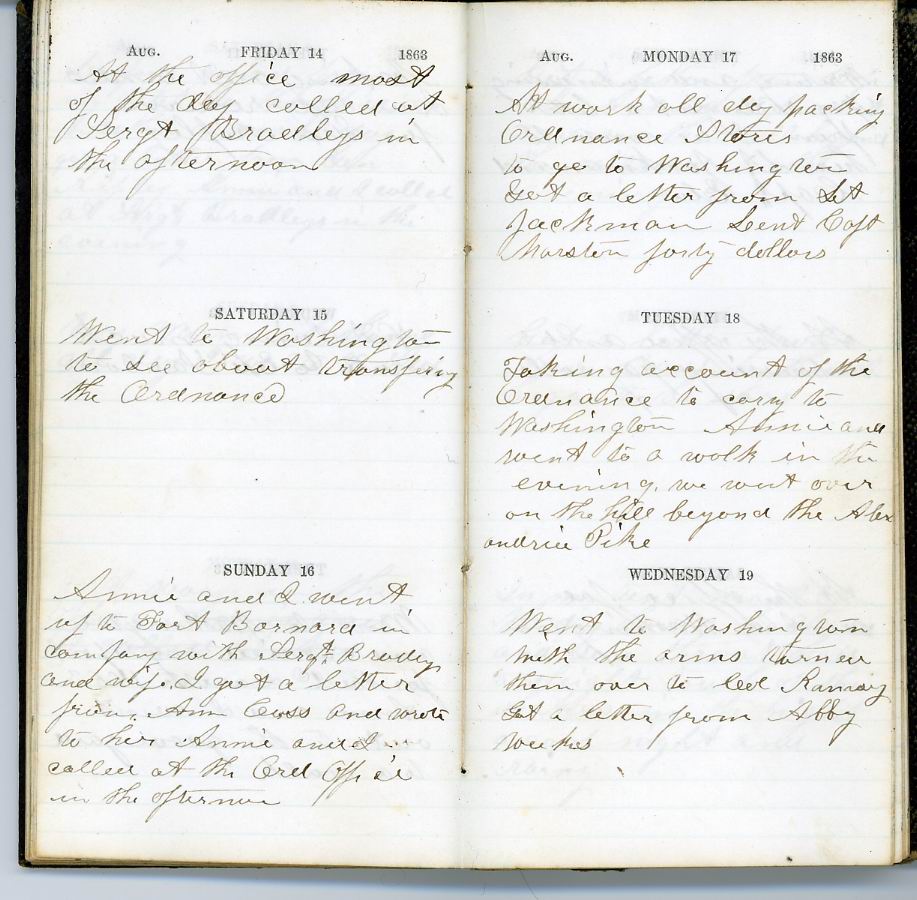 Aug. FRIDAY 14 1863
At the office most
of the day called at
Sergt Bradleys in
the afternoon
SATURDAY 15
Went to Washington
to see about transfering
the Ordnance
SUNDAY 16
Annie and I went
up to Fort Barnard in
company with Sergt. Bradley
and wife. I got a letter
from Ann and wrote
to her Annie and I
called at the Ord Office
in the afternoon
Aug. MONDAY 17 1863
At work all day packing
Ordnance Stores
to go to Washington
Got a letter from Lt
Jackman Sent Capt
Marston forty dollars
TUESDAY 18
Taking account of the
Ordnance to carry to
Washington Annie and
went to a walk in the
evening. we went over
on the hill beyond the Alex
andria Pike
WEDNESDAY 19
Went to Washington
with the arms turned
them over to Col Ramsay
Got a letter from Abby
Weekes